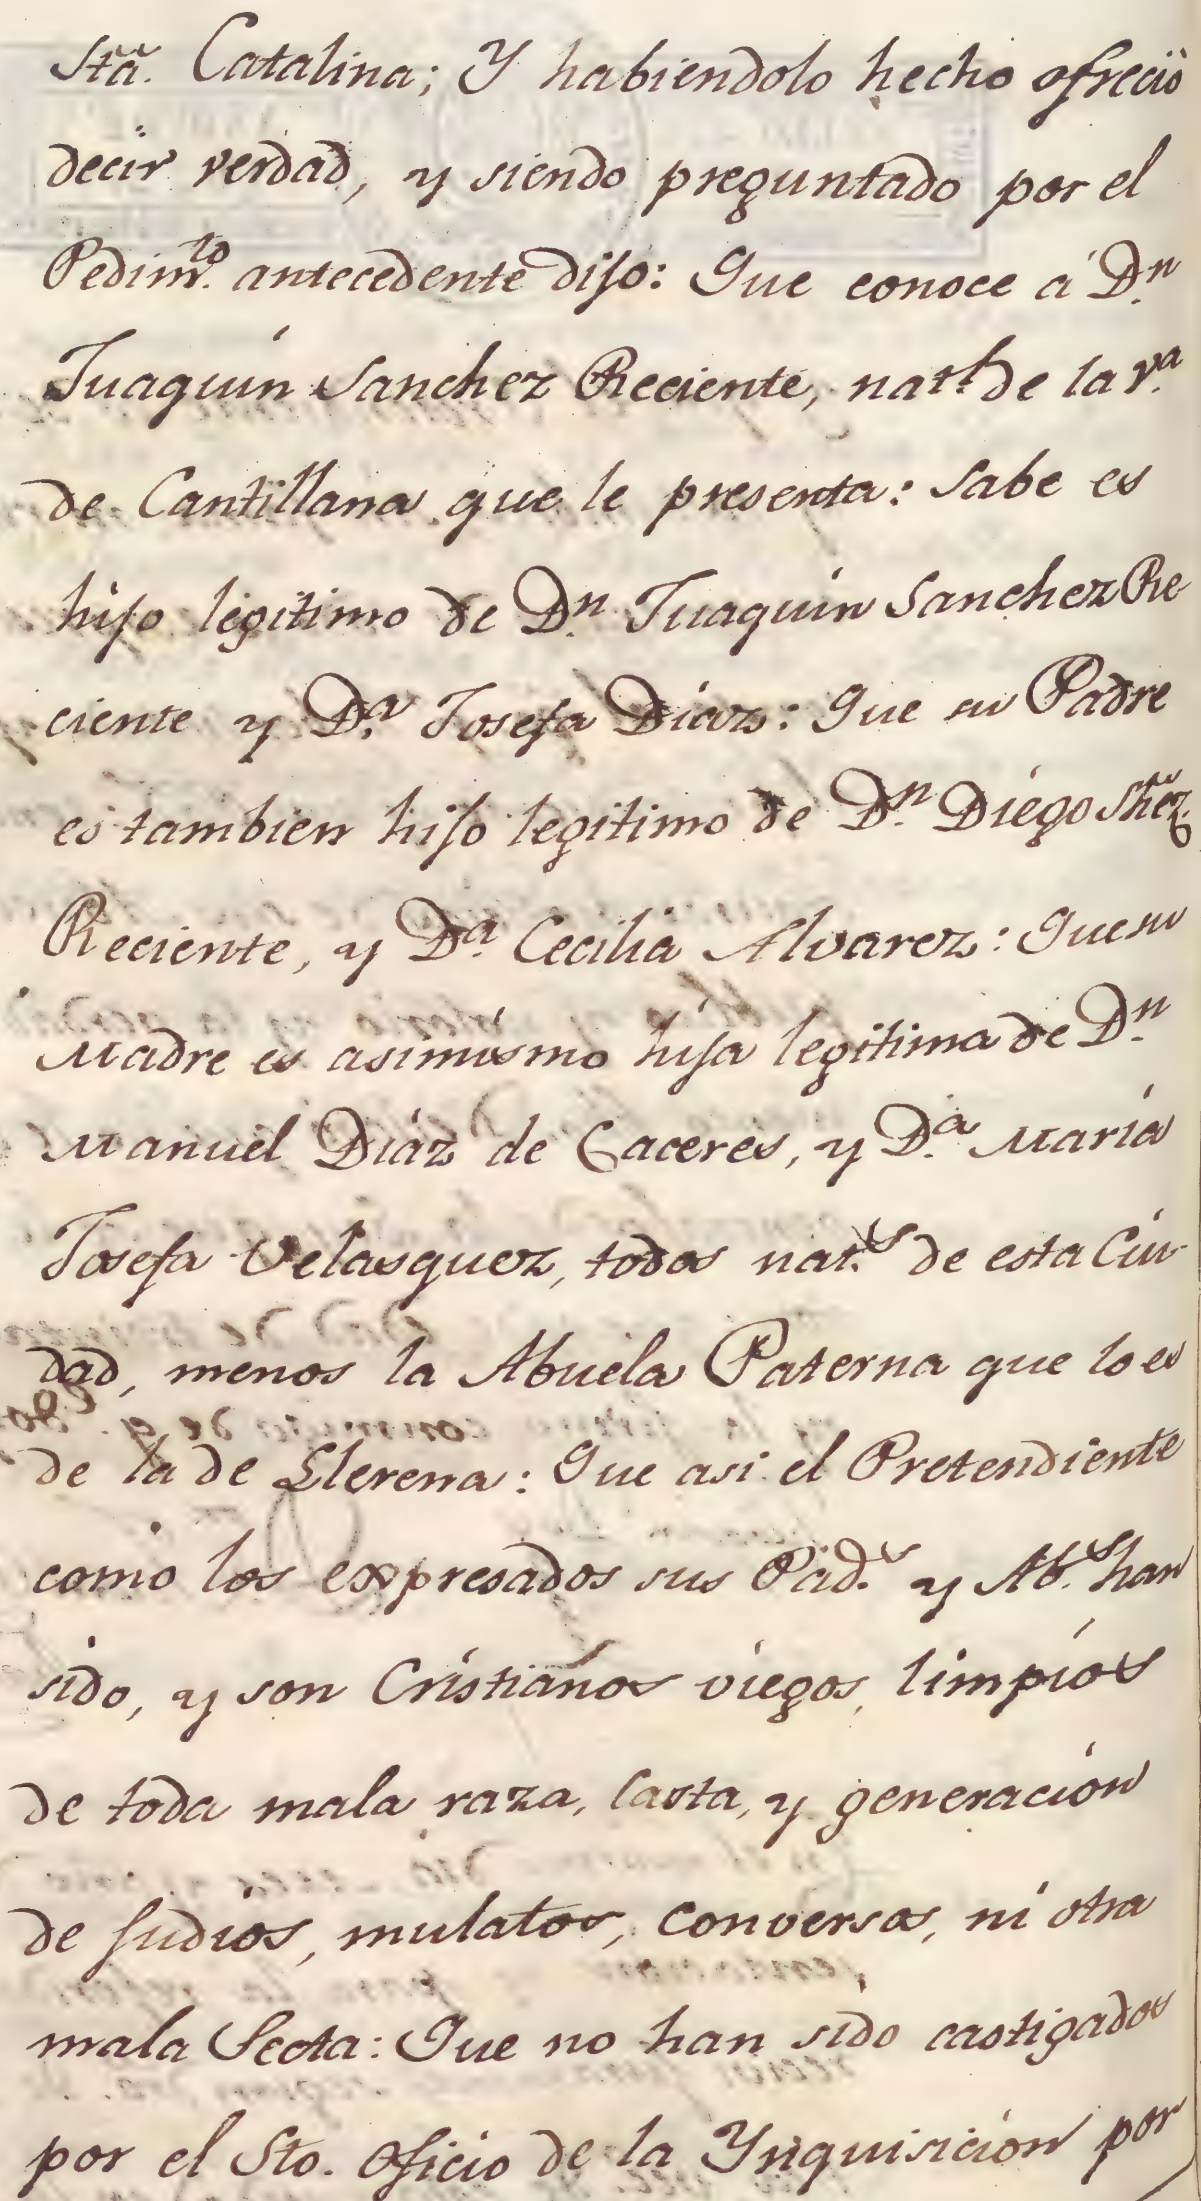 Stã. Catalina; Y habiendolo hecho ofrecio
decir verdad, y siendo preguntado por el
Pedimto. antecedente dijo: Que conoce á Dn.
Juaquin Sanchez Reciente, natl. de la Va.
de Cantillana que le presenta: Sabe es
hijo legitimo de Dn. Juaquin Sanchez Re-
ciente y Da. Josefa Diaz: Que su Padre
es tambien hijo legitimo de Dn. Diego Shez.
Reciente, y Da. Cecilia Alvarez: Que su
Madre es asimismo hija legitima de Dn.
Manuel Diaz de Caceres, y Da. Maria
Josefa Velasquez, todos nats. de esta Ciu-
dad, menos la Abuela Paterna que lo es
de la de Llerena: Que asi el Pretendiente
como los expresados sus Pads. y Abs. han
sido, y son Cristianos viegos, limpios
de toda mala raza, casta, y generacion
de Judios, mulatos, conversos, ni otra
mala Secta: Que no han sido castigados
por el Sto. Oficio de la Ynquisicion por